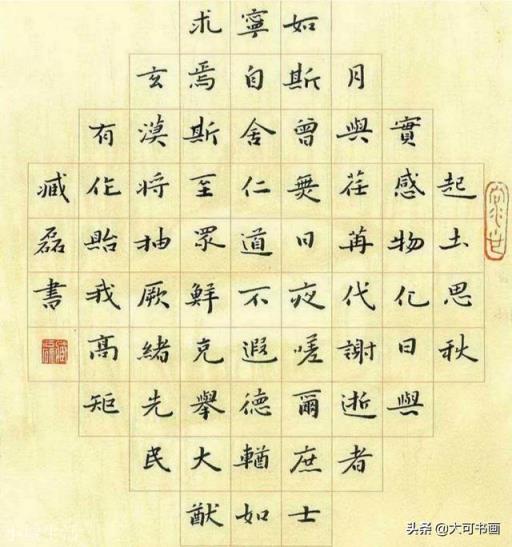 起土思秋
實感物化日與
月與荏苒代謝逝者
如斯曾無日夜嗟爾庶士
寧自舍仁道不遐德輶如
求焉斯至眾鮮克舉大猷
玄漠將抽厥緒先民
有作貽我高矩
臧磊書
头条 @大可书画